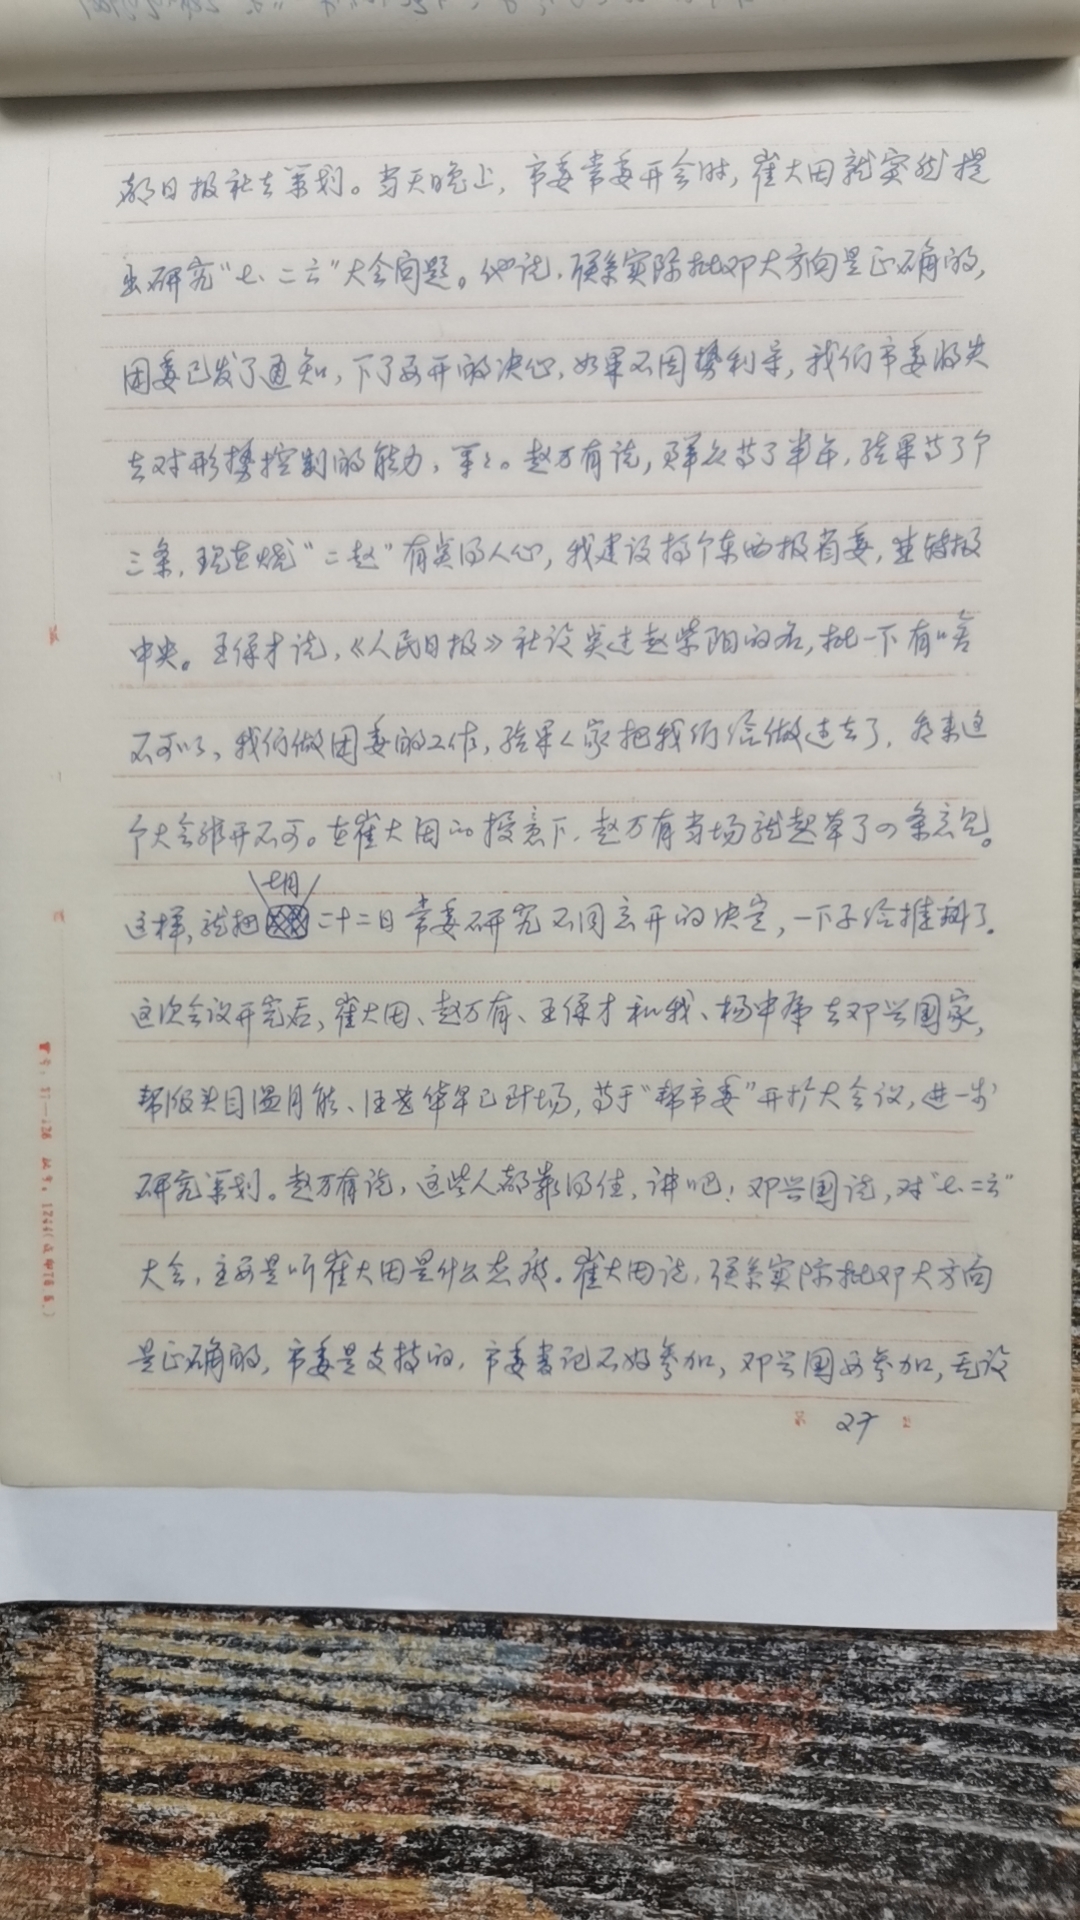 都日报社去策划。当天晚上，市委常委开会时，崔大田就突然提
出研究“七·二六”大会问题。他说，联系实际批邓大方向是正确的，
团委已发了通知，下了要开的决心，如果不因势利导，我们市委将失
去对形势控制的能力，等等。赵万有说，群众等了半年，结果等了个
三条，现在烧“二赵”有实得人心，我建议搞个东西报省委，并转报
中央。王保才说，《人民日报》社论点过赵紫阳的名，批一下有啥
不可以，我们做团委的工作，结果人家把我们给做过去了，看来这
个大会非开不可。在崔大田的授意下，赵万有当场就起草了四条意见。
这样，就把七月二十二日常委研究不同意开的决定，一下子给推翻了。
这次会议开完后，崔大田、赵万有、王保才和我、杨中 去邓兴国家，
帮派头目温月能、汪 华早已到场，等于“帮市委”开扩大会议，进一步
研究策划。赵万有说，这些人都靠得住，讲吧！邓兴国说，对“七·二六”
大会，主要是听崔大田是什么态度。崔大田说，联系实际批邓大方向
是正确的，市委是支持的，市委书记不好参加，邓兴国要参加，无论
第 27